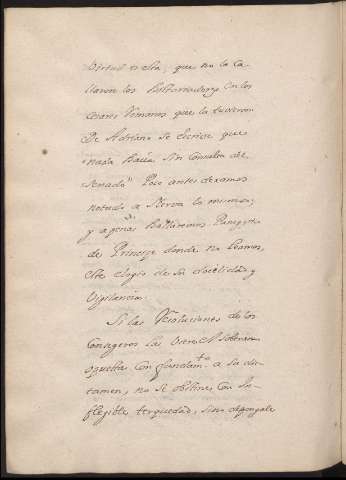 Virtud es esta, que no la Ca-
llaron los Historiadores en los
Cesares Romanos que la tuvieron
De Adriano se Escrive que
"nada hacia sin Consulta del
Senado" Poco antes dexamos
notado a Nerva lo mismo;
y apenas hallaremos Panegiris
de Principe donde no leamos
este elogio de su docilidad, y
Vigilancia.
Si las Resoluciones de los
Consegeros las viere el Soberano
opuestas con fundam.to a su dic-
tamen, no se obstine con in-
flegible terquedad, sino depongale